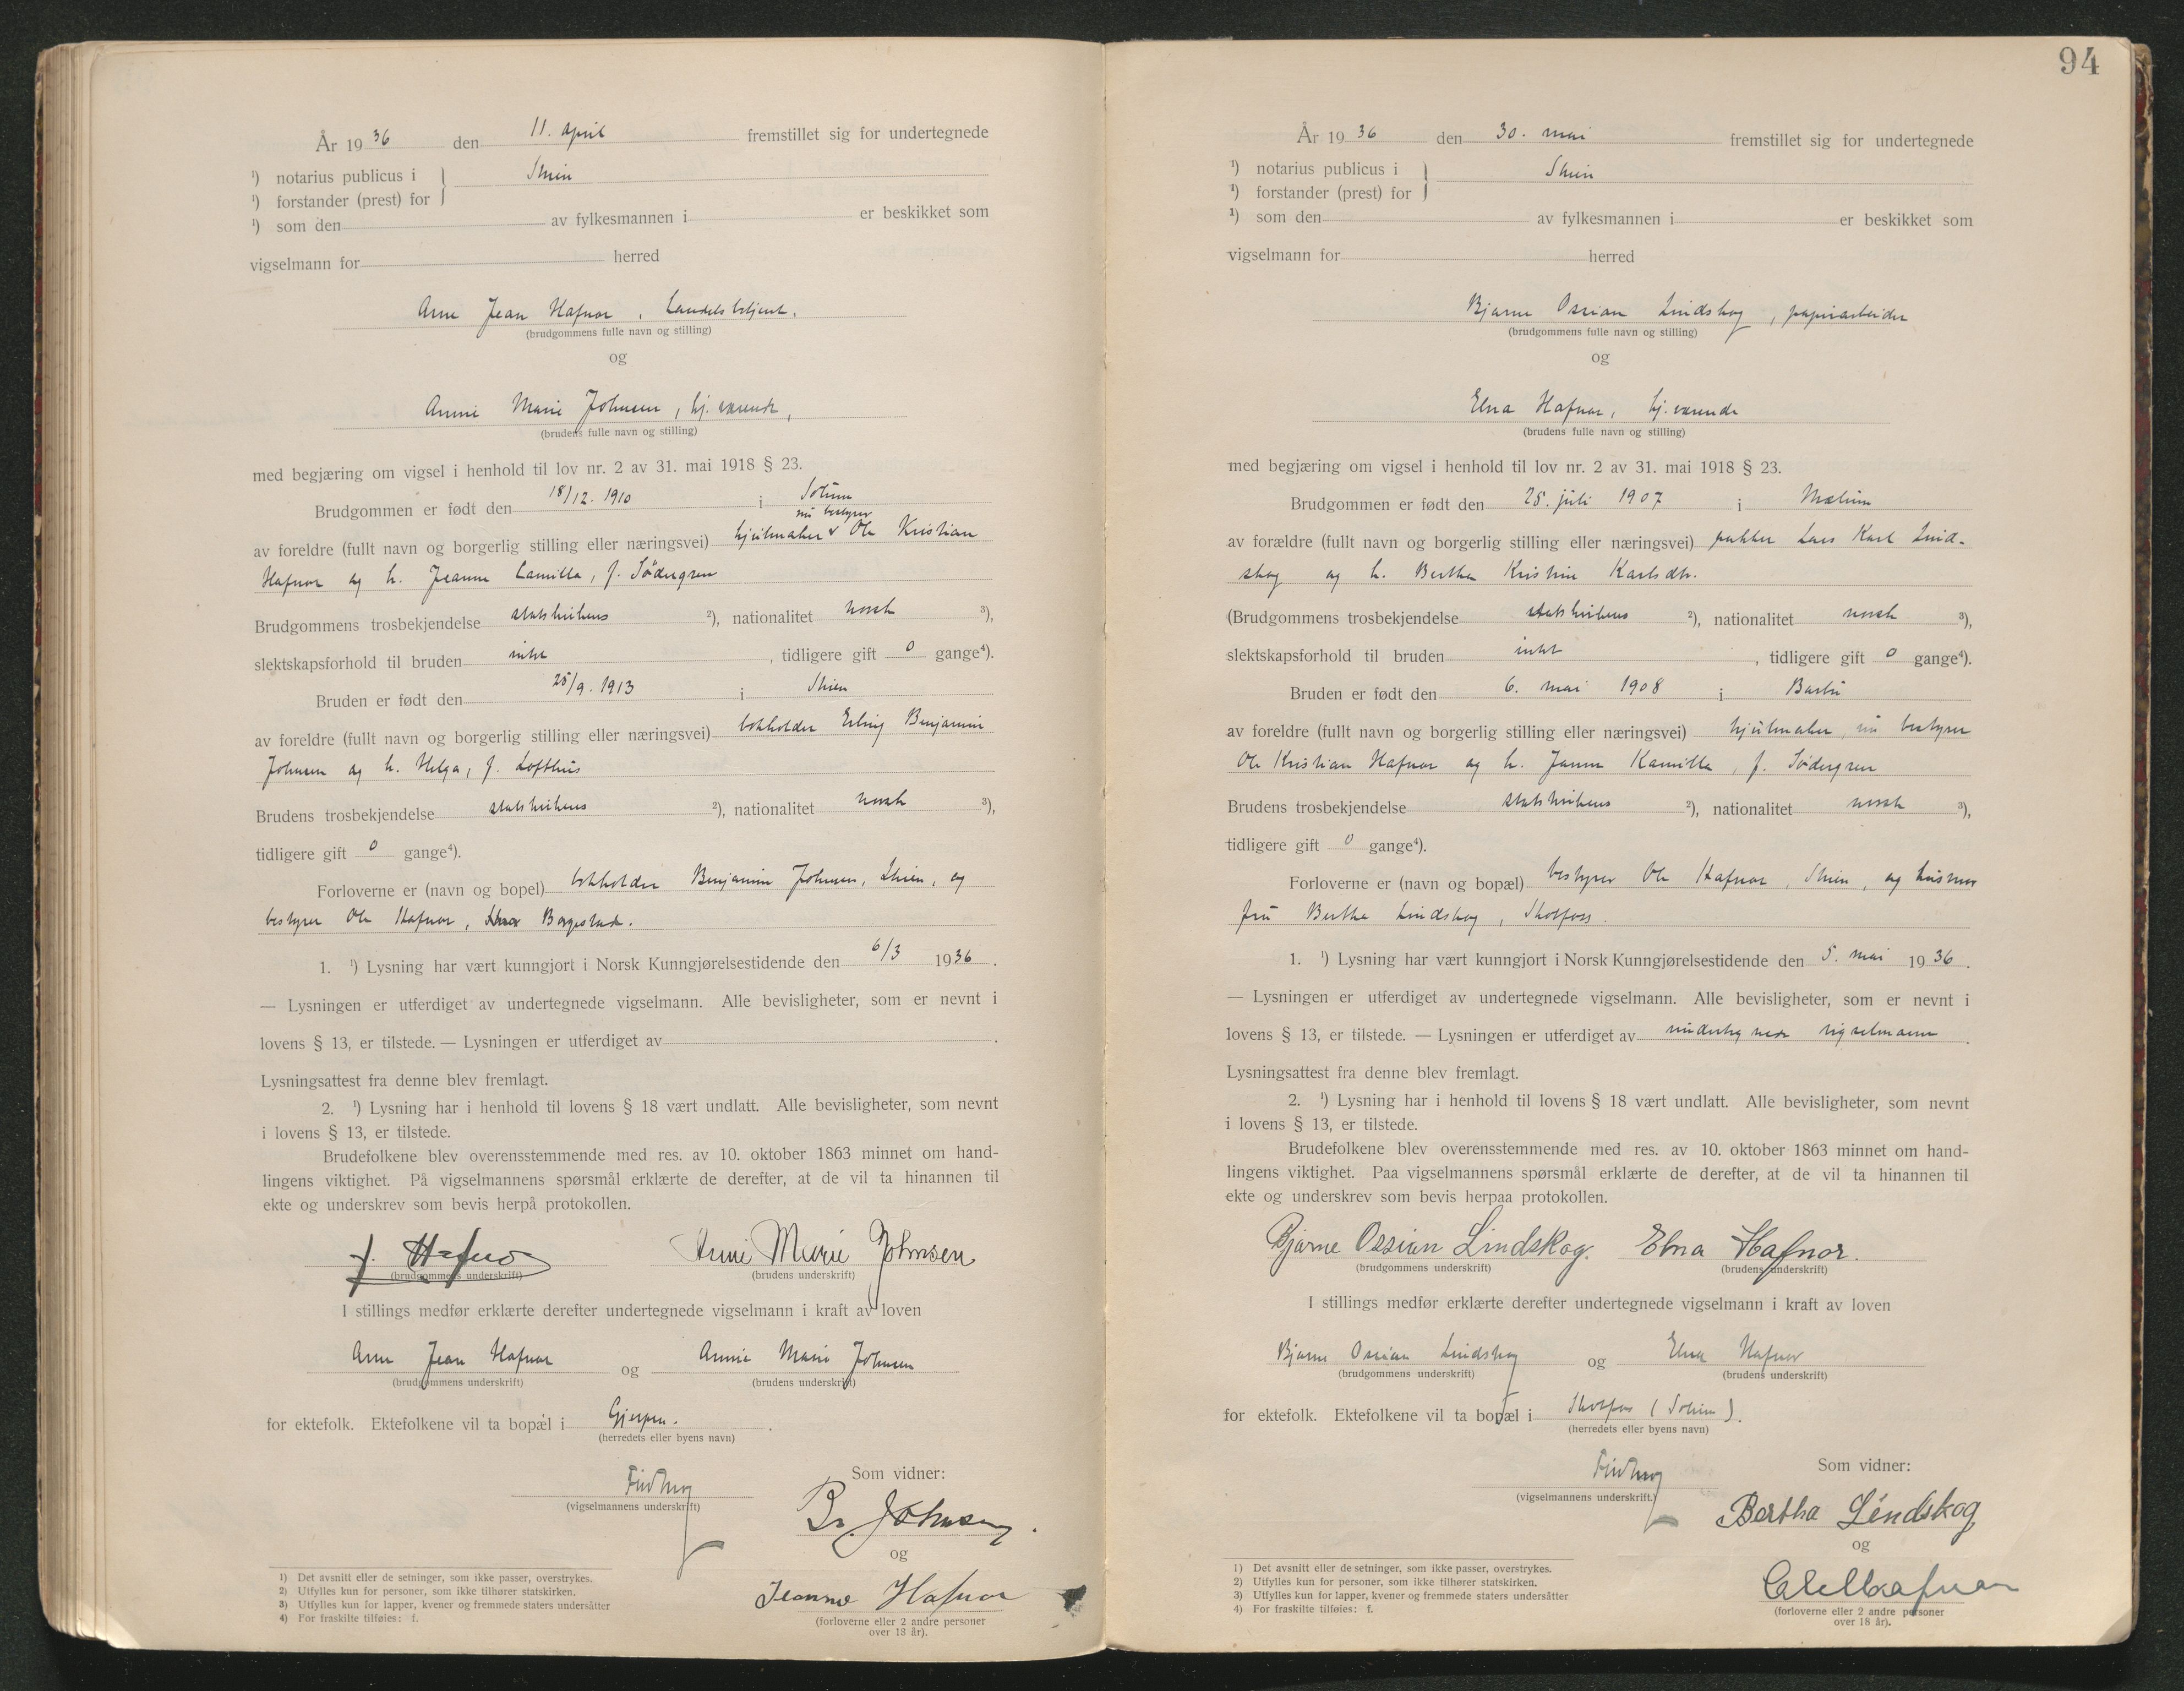 År 1936 den 11. april fremstillet sig for undertegnede
¹) notarius publicus i } Skien
¹) forstander (prest) for
¹) som den av fylkesmannen i er beskikket som
vigselmann for herred
Arne Jean Hafnor, handelsbetjent.
(brudgommens fulle navn og stilling)
og
Annie Marie Johnsen, hj. værende,
(brudens fulle navn og stilling)
med begjæring om vigsel i henhold til lov nr. 2 av 31. mai 1918 § 23.
Brudgommen er født den 18/12. 1910 i Solum
nu bestyrer
av foreldre (fullt navn og borgerlig stilling eller næringsvei) hjulmaker Ole Kristian
Hafnor og h. Jeanne Camilla, f. Södergren
Brudgommens trosbekjendelse statskirkens ²), nationalitet norsk ³),
slektskapsforhold til bruden intet , tidligere gift 0 gange⁴).
Bruden er født den 25/9. 1913 i Skien
av foreldre (fullt navn og borgerlig stilling eller næringsvei) bokholder Erling Benjamin
Johnsen og h. Helga, f. Lofthus
Brudens trosbekjendelse statskirkens ²), nationalitet norsk ³),
tidligere gift 0 gange⁴).
Forloverne er (navn og bopel) bokholder Benjamin Johnsen, Skien, og
bestyrer Ole Hafnor, Borgestad.
1. ¹) Lysning har vært kunngjort i Norsk Kunngjørelsestidende den 6/3 1936.
— Lysningen er utferdiget av undertegnede vigselmann. Alle bevisligheter, som er nevnt i
lovens § 13, er tilstede. — Lysningen er utferdiget av .
Lysningsattest fra denne blev fremlagt.
2. ¹) Lysning har i henhold til lovens § 18 vært undlatt. Alle bevisligheter, som nevnt
i lovens § 13, er tilstede.
Brudefolkene blev overensstemmende med res. av 10. oktober 1863 minnet om hand-
lingens viktighet. På vigselmannens spørsmål erklærte de derefter, at de vil ta hinannen til
ekte og underskrev som bevis herpå protokollen.
J. Hafnor Anni Marie Johnsen
(brudgommens underskrift) (brudens underskrift)
I stillings medfør erklærte derefter undertegnede vigselmann i kraft av loven
Arne Jean Hafnor og Annie Marie Johnsen
(brudgommens underskrift) (brudens underskrift)
for ektefolk. Ektefolkene vil ta bopel i Gjerpen.
(herredets eller byens navn)
Som vidner:
(vigselmannens underskrift)
B. Johnsen.
og
Jeanne Hafnor
(forloverne eller 2 andre personer
over 18 år).
1) Det avsnitt eller de setninger, som ikke passer, overstrykes.
2) Utfylles kun for personer, som ikke tilhører statskirken.
3) Utfylles kun for lapper, kvener og fremmede staters undersåtter
4) For fraskilte tilføies: f.
94
År 1936 den 30. mai fremstillet sig for undertegnede
¹) notarius publicus i } Skien
¹) forstander (prest) for
¹) som den av fylkesmannen i er beskikket som
vigselmann for herred
Bjarne Ossian Lindskog, papirarbeider
(brudgommens fulle navn og stilling)
og
Elna Hafnor, hj. værende
(brudens fulle navn og stilling)
med begjæring om vigsel i henhold til lov nr. 2 av 31. mai 1918 § 23.
Brudgommen er født den 28. juli 1907 i Mælum
av forældre (fullt navn og borgerlig stilling eller næringsvei) pakker Lars Karl Lind-
skog og h. Berthe Kristine Karlsdtr.
(Brudgommens trosbekjendelse statskirkens ²), nationalitet norsk ³),
slektskapsforhold til bruden intet , tidligere gift 0 gange⁴).
Bruden er født den 6. mai 1908 i Barbu
av foreldre (fullt navn og borgerlig stilling eller næringsvei) hjulmaker, nu bestyrer
Ole Kristian Hafnor og h. Janna Kamilla, f. Södergren
Brudens trosbekjendelse statskirkens ²), nationalitet norsk ³),
tidligere gift 0 gange⁴).
Forloverne er (navn og bopæl) bestyrer Ole Hafnor, Skien, og husmor
fru Berthe Lindskog, Skotfoss.
1. ¹) Lysning har vært kunngjort i Norsk Kunngjørelsestidende den 5. mai 1936.
— Lysningen er utferdiget av undertegnede vigselmann. Alle bevisligheter, som er nevnt i
lovens § 13, er tilstede. — Lysningen er utferdiget av undertegnede vigselmann.
Lysningsattest fra denne blev fremlagt.
2. ¹) Lysning har i henhold til lovens § 18 vært undlatt. Alle bevisligheter, som nevnt
i lovens § 13, er tilstede.
Brudefolkene blev overensstemmende med res. av 10. oktober 1863 minnet om hand-
lingens viktighet. Paa vigselmannens spørsmål erklærte de derefter, at de vil ta hinannen til
ekte og underskrev som bevis herpaa protokollen.
Bjarne Ossian Lindskog. Elna Hafnor.
(brudgommens underskrift) (brudens underskrift)
I stillings medfør erklærte derefter undertegnede vigselmann i kraft av loven
Bjarne Ossian Lindskog og Elna Hafnor
(brudgommens underskrift) (brudens underskrift)
for ektefolk. Ektefolkene vil ta bopæl i Skotfoss (Solum).
(herredets eller byens navn)
Som vidner:
(vigselmannens underskrift.)
Bertha Lindskog
og
(forloverne eller 2 andre personer
over 18 år).
1) Det avsnitt eller de setninger, som ikke passer, overstrykes.
2) Utfylles kun for personer, som ikke tilhører statskirken.
3) Utfylles kun for lapper, kvener og fremmede staters undersåtter
4) For fraskilte tilføies: f.